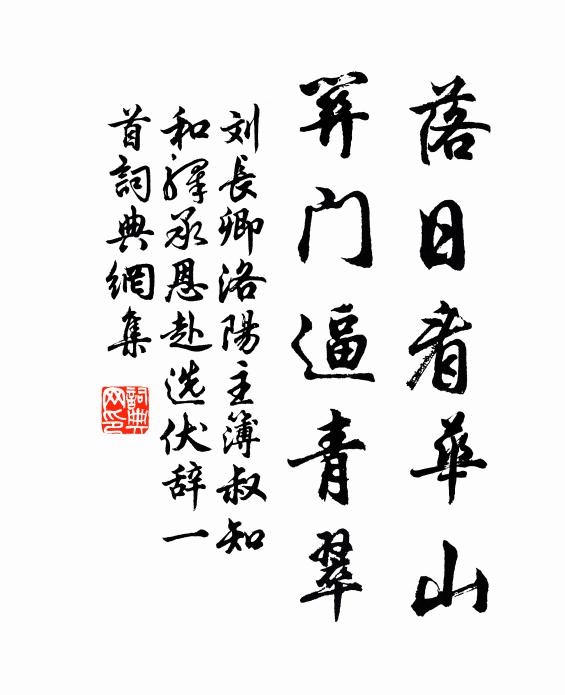 落日看華山
关门逼青翠
刘長卿洛陽主簿叔知
和驛承恩赴选伏辞一
首詞典網集
詞典
网印